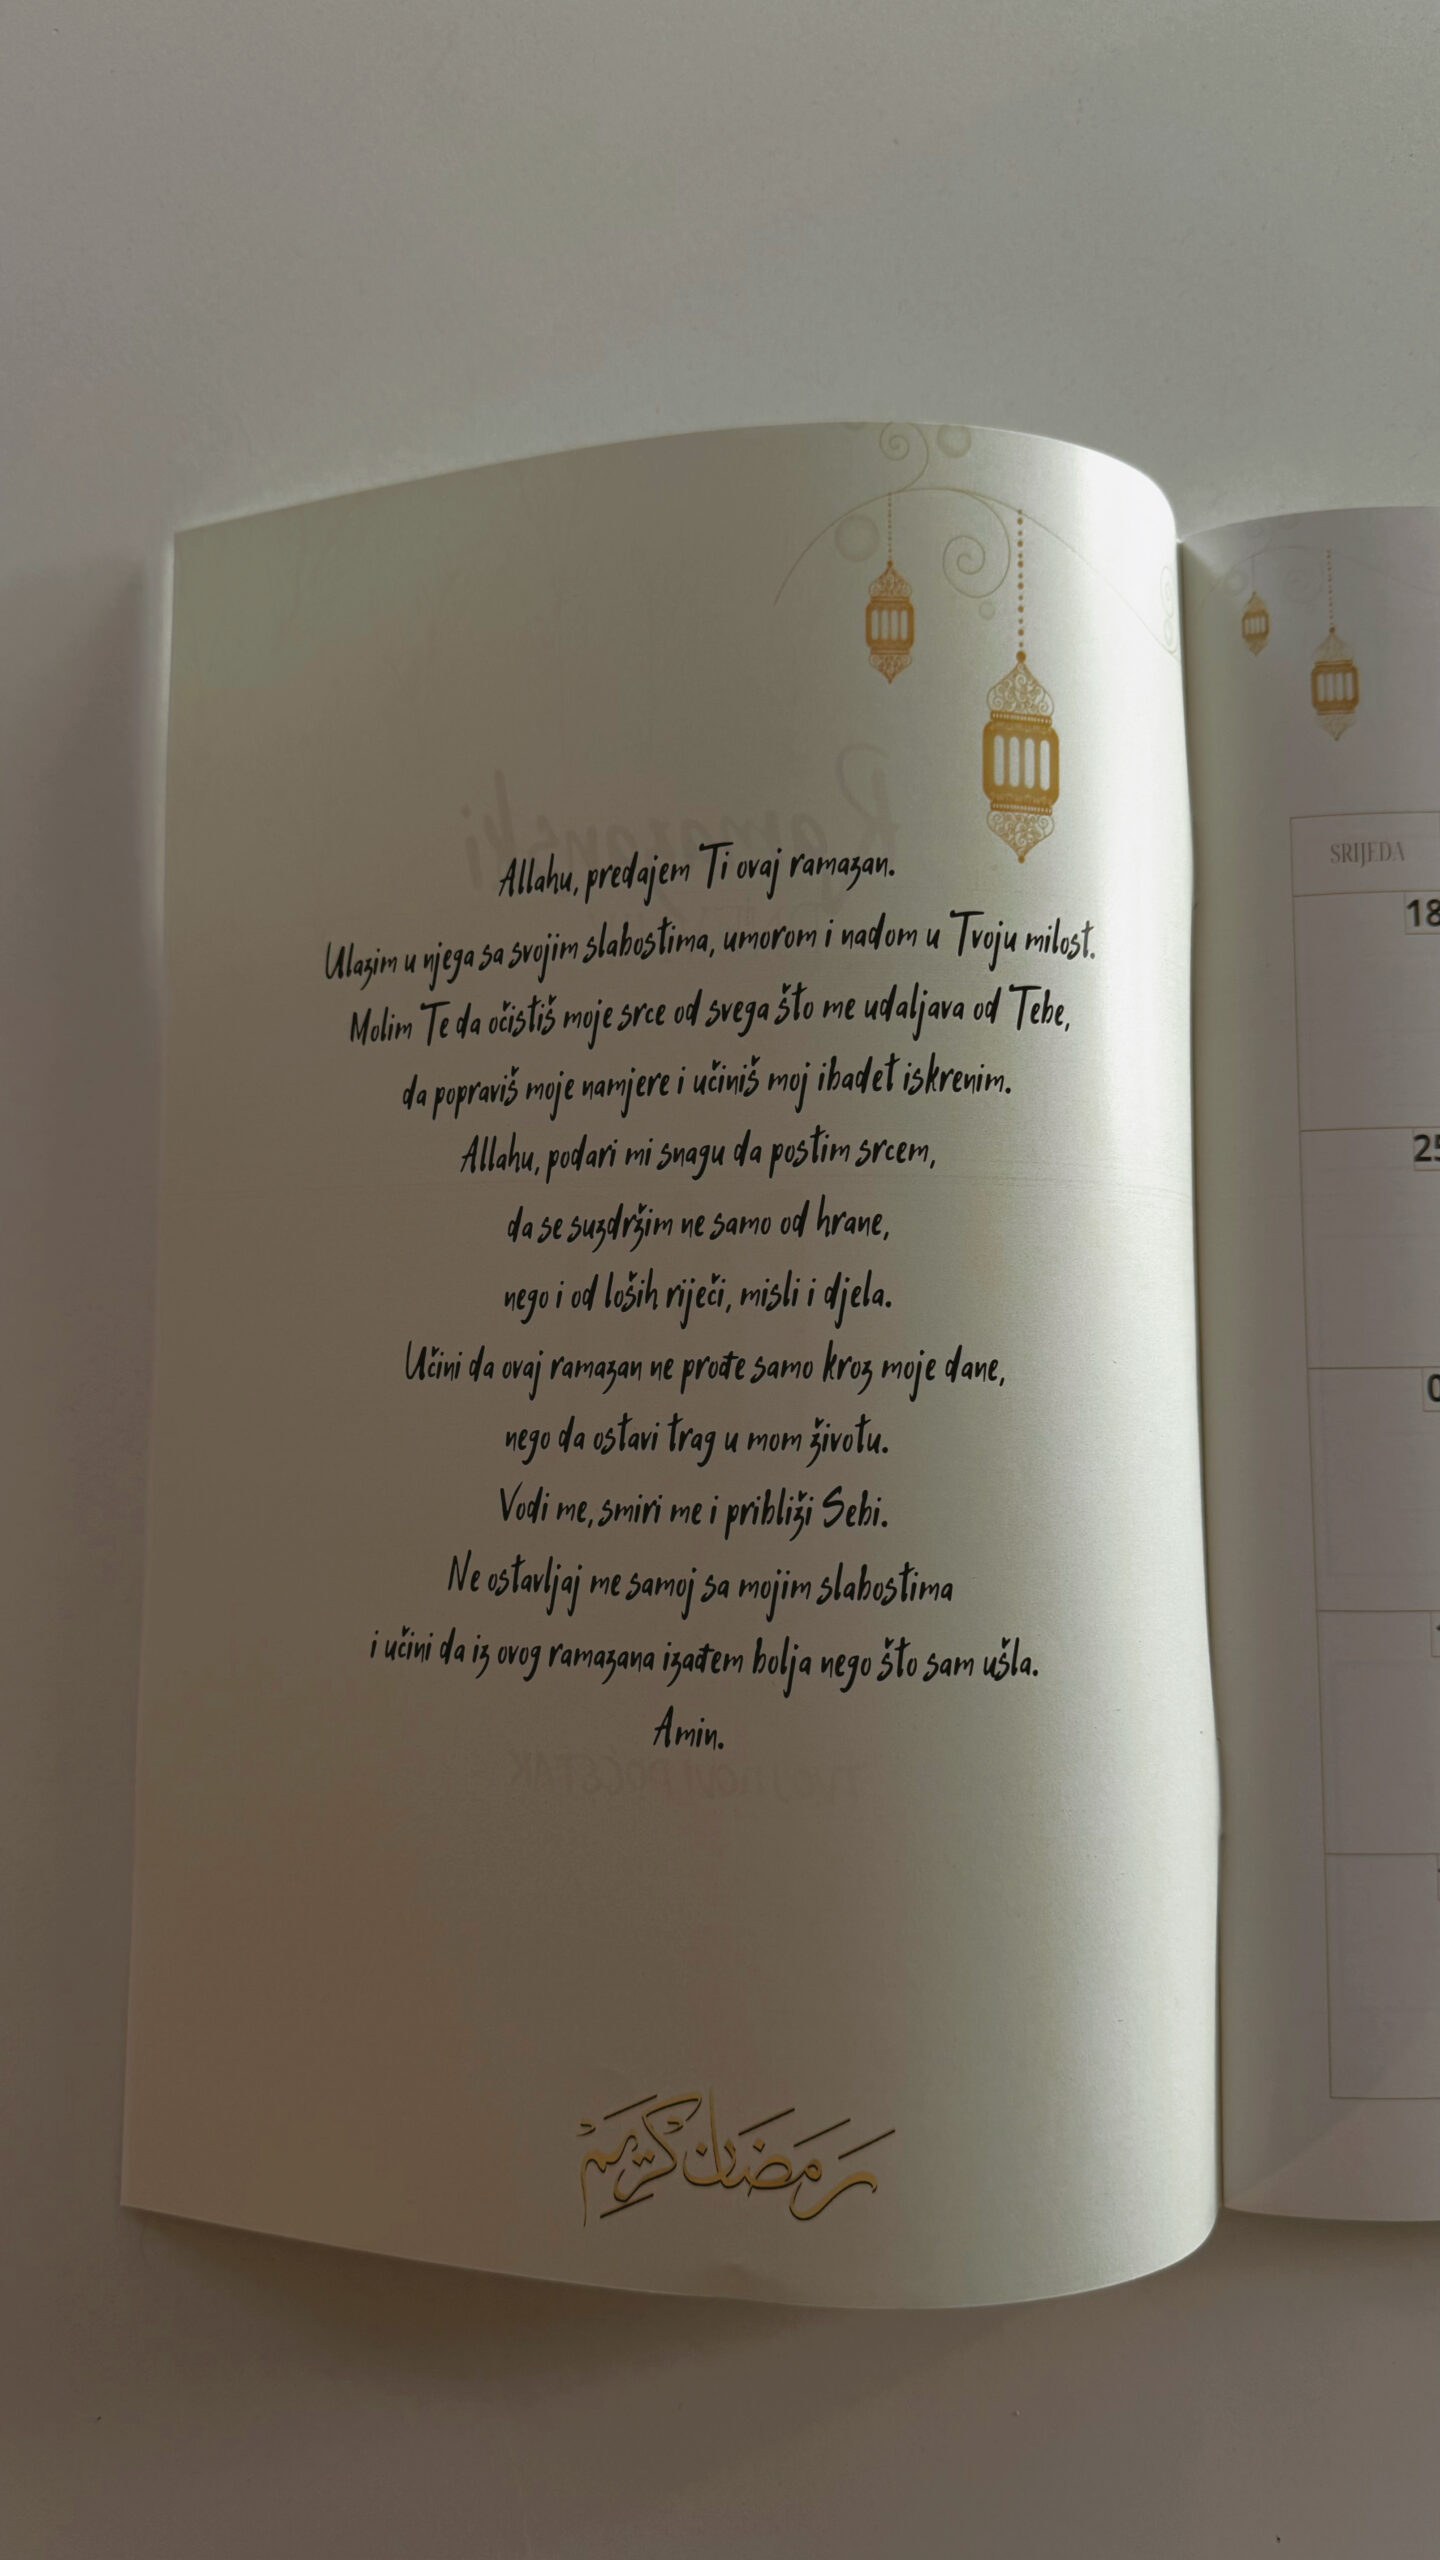 Allahu, predajem Ti ovaj ramazan.
Ulazim u njega sa svojim slabostima, umorom i nadom u Tvoju milost.
Molim Te da očistiš moje srce od svega što me udaljava od Tebe,
da popraviš moje namjere i učiniš moj ibadet iskrenim.
Allahu, podari mi snagu da postim srcem,
da se suzdržim ne samo od hrane,
nego i od loših riječi, misli i djela.
Učini da ovaj ramazan ne prođe samo kroz moje dane,
nego da ostavi trag u mom životu.
Vodi me, smiri me i približi Sebi.
Ne ostavljaj me samoj sa mojim slabostima
i učini da iz ovog ramazana izađem bolja nego što sam ušla.
Amin.
رمضان كريم
SRIJEDA
18
25